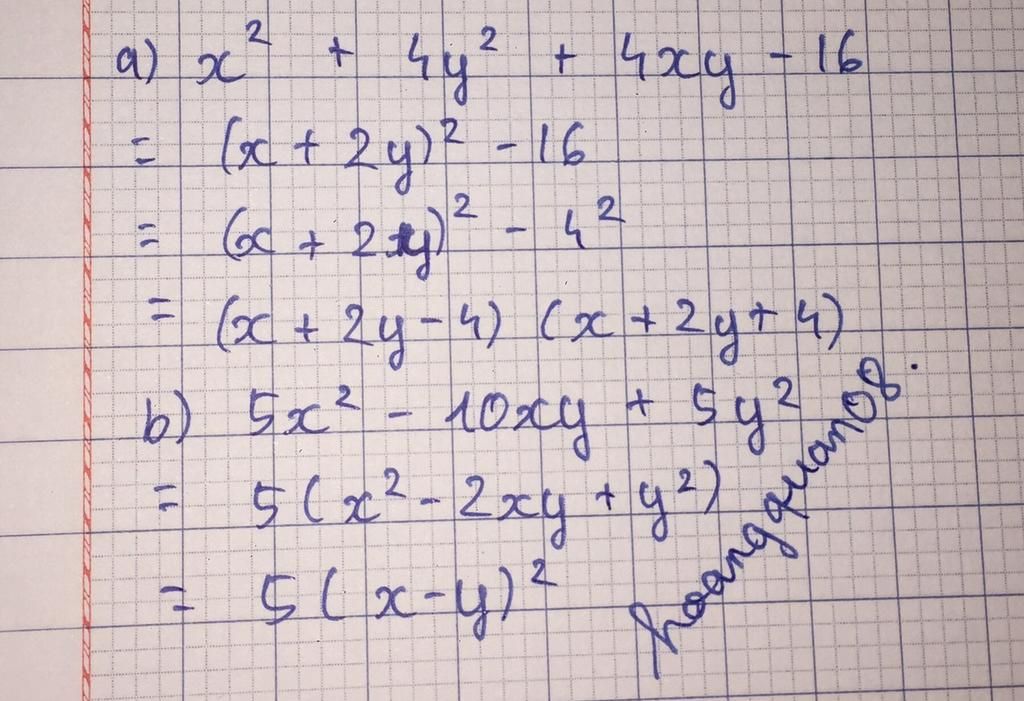 a) x² + 4y² + 4xy - 16
= (x + 2y)² - 16
= (x + 2y)² - 4²
= (x + 2y - 4) (x + 2y + 4)
b) 5x² - 10xy + 5y²
= 5(x² - 2xy + y²)
= 5(x - y)²
hoangquan08.